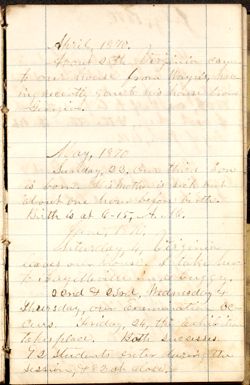 April, 1870.
25th Virginia came
to our house from Wayne's, hav-
ing recently gone to his house from
Georgia.
May, 1870
Sunday, 22, Our third Son
is born. His Mother is sick but
about one hour before birth.
Birth is at 6-15, A.M.
June, 1870.
Saturday 4, Virginia
leaves our house. I take her
to in buggy.
22nd & 23rd, Wednesday &
Thursday, our Examination oc-
curs. Friday, 24, the exhibition
takes place. Both successes.
72 Students enter during the
session, & 82 at close.